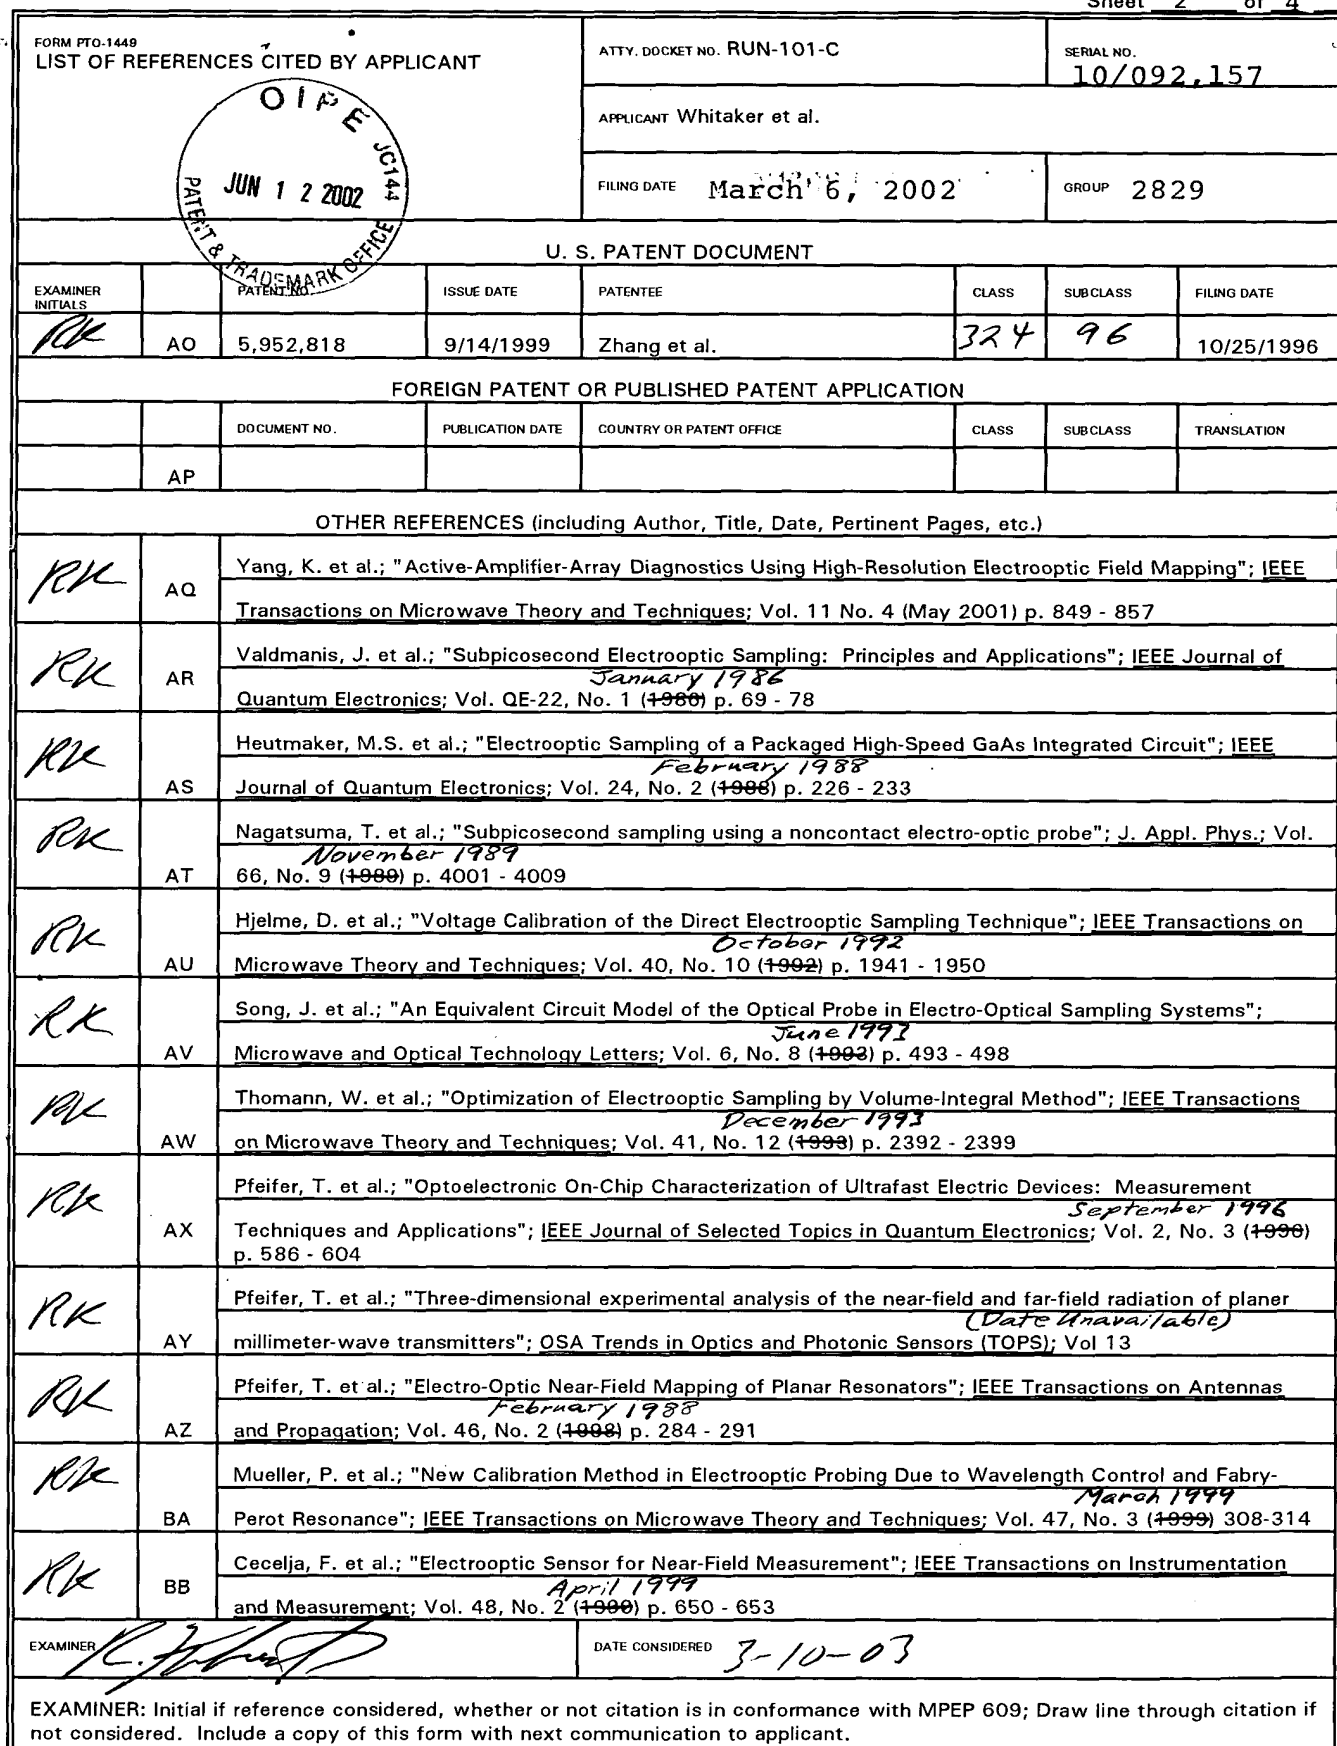 Sheet 2 of 4
FORM PTO-1449
LIST OF REFERENCES CITED BY APPLICANT
ATTY. DOCKET NO. RUN-101-C
SERIAL NO.
10/092,157
APPLICANT Whitaker et al.
FILING DATE March 6, 2002
GROUP 2829
OIPE JC144
JUN 1 2 2002
PATENT & TRADEMARK OFFICE
U. S. PATENT DOCUMENT
EXAMINER INITIALS PATENT NO. ISSUE DATE PATENTEE CLASS SUBCLASS FILING DATE
RK AO 5,952,818 9/14/1999 Zhang et al. 324 96 10/25/1996
FOREIGN PATENT OR PUBLISHED PATENT APPLICATION
DOCUMENT NO. PUBLICATION DATE COUNTRY OR PATENT OFFICE CLASS SUBCLASS TRANSLATION
AP
OTHER REFERENCES (including Author, Title, Date, Pertinent Pages, etc.)
RK AQ Yang, K. et al.; "Active-Amplifier-Array Diagnostics Using High-Resolution Electrooptic Field Mapping"; IEEE
Transactions on Microwave Theory and Techniques; Vol. 11 No. 4 (May 2001) p. 849 - 857
RK AR Valdmanis, J. et al.; "Subpicosecond Electrooptic Sampling: Principles and Applications"; IEEE Journal of
January 1986
Quantum Electronics; Vol. QE-22, No. 1 (1986) p. 69 - 78
RK AS Heutmaker, M.S. et al.; "Electrooptic Sampling of a Packaged High-Speed GaAs Integrated Circuit"; IEEE
February 1988
Journal of Quantum Electronics; Vol. 24, No. 2 (1988) p. 226 - 233
RK AT Nagatsuma, T. et al.; "Subpicosecond sampling using a noncontact electro-optic probe"; J. Appl. Phys.; Vol.
November 1989
66, No. 9 (1989) p. 4001 - 4009
RK AU Hjelme, D. et al.; "Voltage Calibration of the Direct Electrooptic Sampling Technique"; IEEE Transactions on
October 1992
Microwave Theory and Techniques; Vol. 40, No. 10 (1992) p. 1941 - 1950
RK AV Song, J. et al.; "An Equivalent Circuit Model of the Optical Probe in Electro-Optical Sampling Systems";
June 1993
Microwave and Optical Technology Letters; Vol. 6, No. 8 (1993) p. 493 - 498
RK AW Thomann, W. et al.; "Optimization of Electrooptic Sampling by Volume-Integral Method"; IEEE Transactions
December 1993
on Microwave Theory and Techniques; Vol. 41, No. 12 (1993) p. 2392 - 2399
RK AX Pfeifer, T. et al.; "Optoelectronic On-Chip Characterization of Ultrafast Electric Devices: Measurement
September 1996
Techniques and Applications"; IEEE Journal of Selected Topics in Quantum Electronics; Vol. 2, No. 3 (1996)
p. 586 - 604
RK AY Pfeifer, T. et al.; "Three-dimensional experimental analysis of the near-field and far-field radiation of planer
(Date Unavailable)
millimeter-wave transmitters"; OSA Trends in Optics and Photonic Sensors (TOPS); Vol 13
RK AZ Pfeifer, T. et al.; "Electro-Optic Near-Field Mapping of Planar Resonators"; IEEE Transactions on Antennas
February 1988
and Propagation; Vol. 46, No. 2 (1998) p. 284 - 291
RK BA Mueller, P. et al.; "New Calibration Method in Electrooptic Probing Due to Wavelength Control and Fabry-
March 1999
Perot Resonance"; IEEE Transactions on Microwave Theory and Techniques; Vol. 47, No. 3 (1999) 308-314
RK BB Cecelja, F. et al.; "Electrooptic Sensor for Near-Field Measurement"; IEEE Transactions on Instrumentation
April 1999
and Measurement; Vol. 48, No. 2 (1999) p. 650 - 653
EXAMINER
DATE CONSIDERED 3-10-03
EXAMINER: Initial if reference considered, whether or not citation is in conformance with MPEP 609; Draw line through citation if
not considered. Include a copy of this form with next communication to applicant.